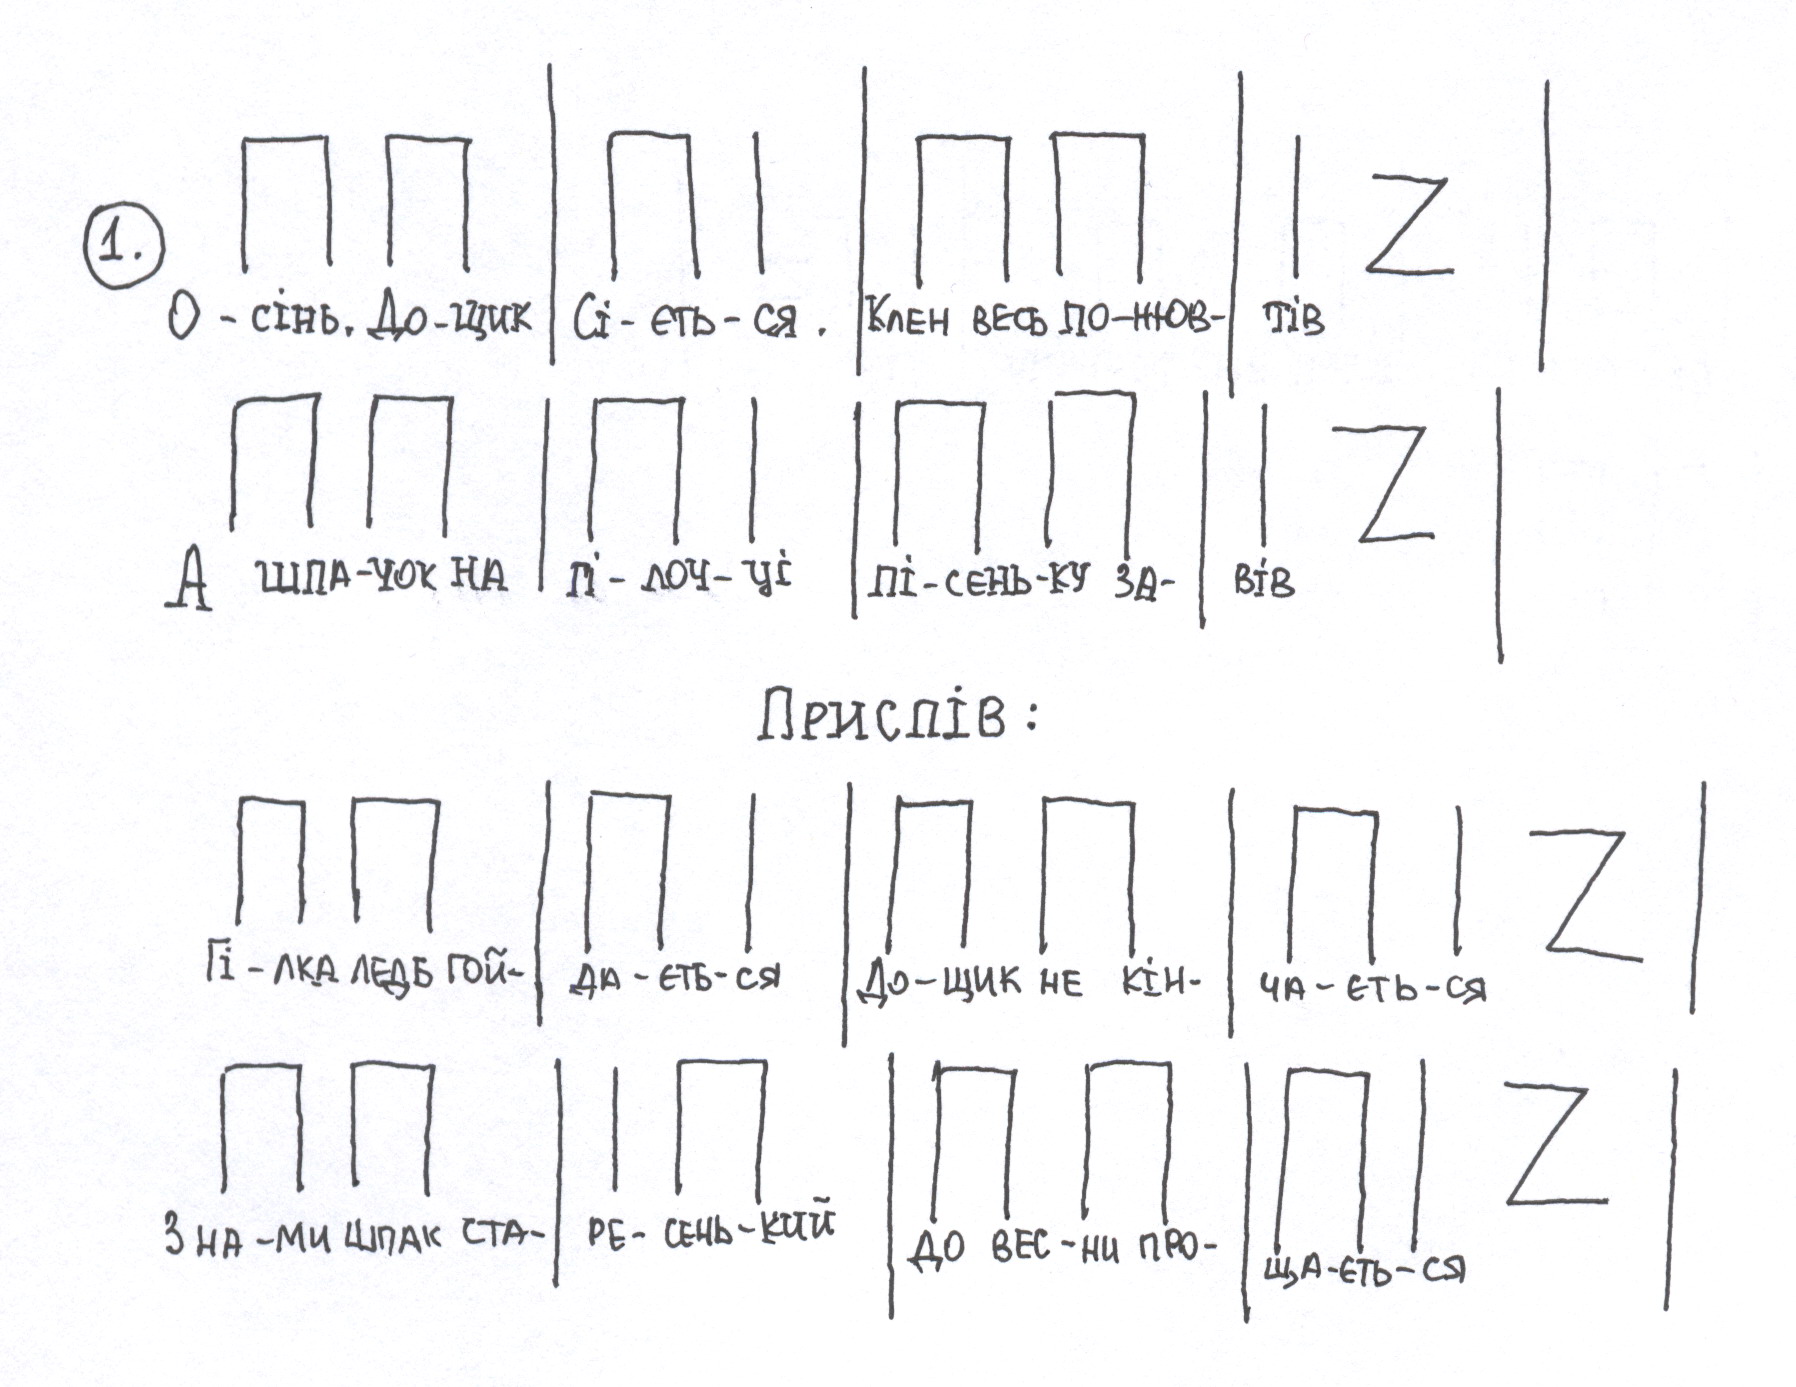 1. О-сінь. До-щик Сі-єть-ся. Клен весь по-жов-тів
А шпа-чок на гі-лоч-ці пі-сень-ку за-вів
Приспів:
Гі-лка ледь гой-да-єть-ся до-щик не кін-ча-єть-ся
З на-ми шпак ста-ре-сень-кий до вес-ни про-ща-єть-ся